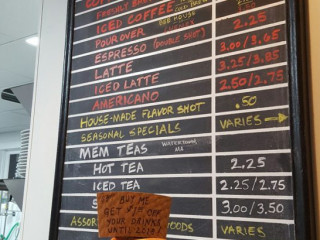 ICED COFFEE
POUR OVER 2.25
ESPRESSO (DOUBLE SHOT) 3.00/3.65
LATTE 3.25/3.85
ICED LATTE 2.50/2.75
AMERICANO
HOUSE-MADE FLAVOR SHOT .50
SEASONAL SPECIALS VARIES →
MEM TEAS WATERTOWN MA
HOT TEA 2.25
ICED TEA 2.25/2.75
S 3.00/3.50
ASSOR OODS VARIES
BUY ME
GET $1 OFF
YOUR DRINKS
UNTIL